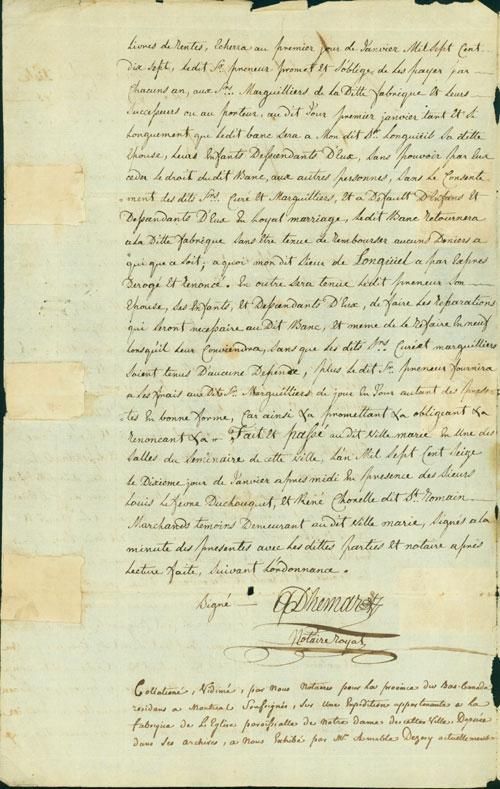 Livres de Rentes, Echerra au premier jour de Janvier Mil Sept Cent
dix sept, Ledit Sr. preneur promet Et Soblige de Les payer par
Chacuns an, aux Srs. Marguilliers de La Ditte fabrique Et Leurs
Successeurs ou au porteur, au dit Jour premier janvier tant Et Si
Longuement que Ledit banc Sera a Mon dit Sr. Longueuil Sa ditte
Epouse, Leurs Enfants Descendants D'Eux, Sans pouvoir par Eux
ceder Le droit du dit Banc, aux autres personnes, Sans Le Consente
ment des dits Srs. Curé et Marguilliers, Et a Deffault D'Enfans Et
Descendants D'Eux En Loyal marriage, Ledit Banc Retournera
a La Ditte fabrique Sans être tenue de Rembourser aucuns Deniers a
qui que ce Soit; a quoi mon dit Sieur de Longueuil a par Exprès
Derogé et Renoncé. En outre Sera tenue Ledit preneur Son
Epouse, Ses Enfants, Et Descendants D'Eux, de faire Les Reparations
qui Seront necessaire au Dit Banc, Et meme de Le Refaire En neuf
Lorsqu'il Leur Conviendra, Sans que Les dits Srs. Curé et marguilliers
Soient tenus D'aucune Depense, plus Ledit Sr. preneur fournira
a Ses frais au Dit Sr. Marguilliers de jour En Jour autant des presen
tes En bonne forme, Car ainsi &a promettant &a obligeant &a
Renoncant &a Fait et passé au dit Ville marie En Une des
Salles du Seminaire de cette Ville, L'an Mil Sept Cent Seize
Le Dixiome jour de Janvier apres midi En presence des Sieurs
Louis Lefevre Duchouquet, Et René Chorelle dit St. Romain
Marchands temoins Demeurant au dit Ville marie, Signés a La
minute des presentes avec Les dittes parties et notaire après
Lecture faite, Suivant L'ordonnance.
Signé — A Dhemard
Notaire royal
Collationé, Vidimé, par Nous Notaires pour La province du Bas-Canada
residans a Montreal Soussignés, Sur Une Expédition appartenante a la
fabrique de L'Eglise paroissialle de Notre dame de cette Ville Deposée
dans Ses archives, a Nous Exhibé par Mr. Amable Dezery actuellement